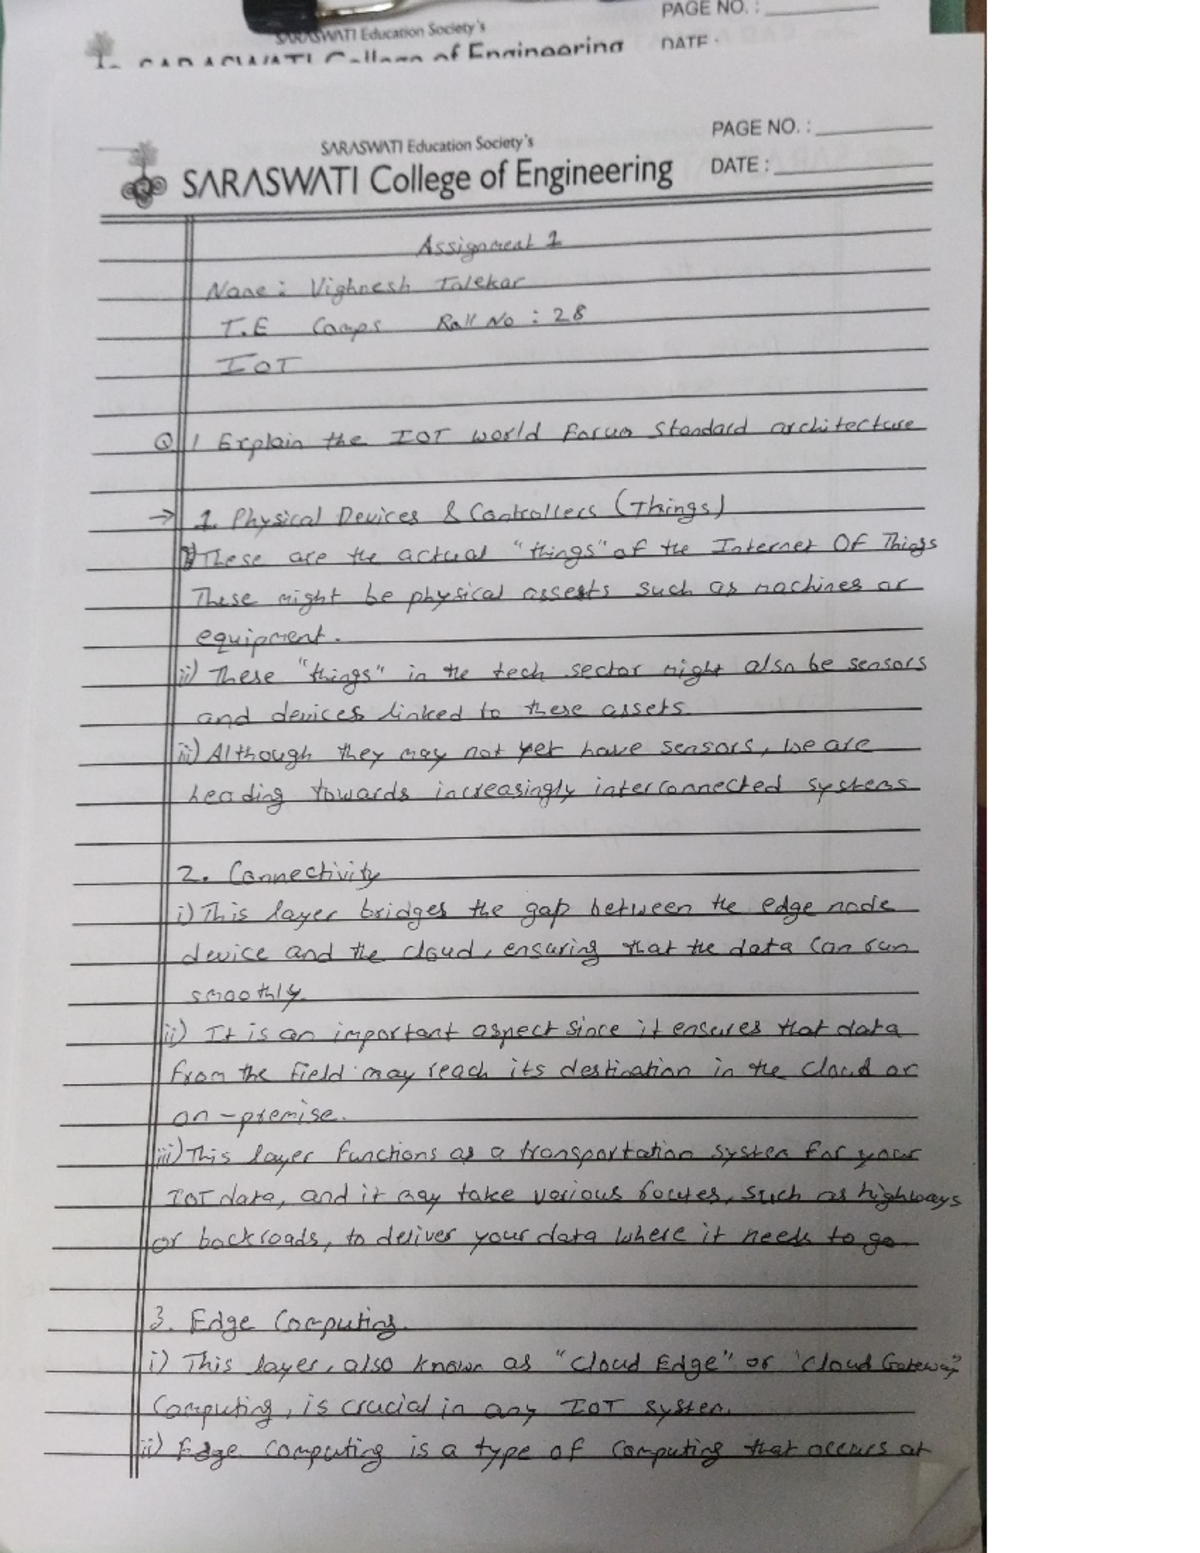 PAGE NO. :
SARASWATI Education Society's
DATE :
SARASWATI College of Engineering
SARASWATI Education Society's
PAGE NO. :
SARASWATI College of Engineering
DATE :
Assignment 1
Name : Vighnesh Talekar
T.E Comps Roll No : 28
IOT
Q 1 Explain the IOT world Forum Standard architecture
→ 1. Physical Devices & Controllers (Things)
i) These are the actual "things" of the Internet Of Things
These might be physical assests such as machines or
equipment.
ii) These "things" in the tech sector might also be sensors
and devices linked to these assets.
iii) Although they may not yet have sensors, we are
heading towards increasingly interconnected systems
2. Connectivity
i) This layer bridges the gap between the edge node
device and the cloud, ensuring that the data can run
smoothly.
ii) It is an important aspect since it ensures that data
from the field may reach its destination in the cloud or
on-premise.
iii) This layer functions as a transportation system for your
IOT data, and it may take various routes, such as highways
or backroads, to deliver your data where it needs to go.
3. Edge Computing.
i) This layer, also known as "Cloud Edge" or 'Cloud Gateway"
Computing, is crucial in any IOT system.
ii) Edge computing is a type of computing that occurs at